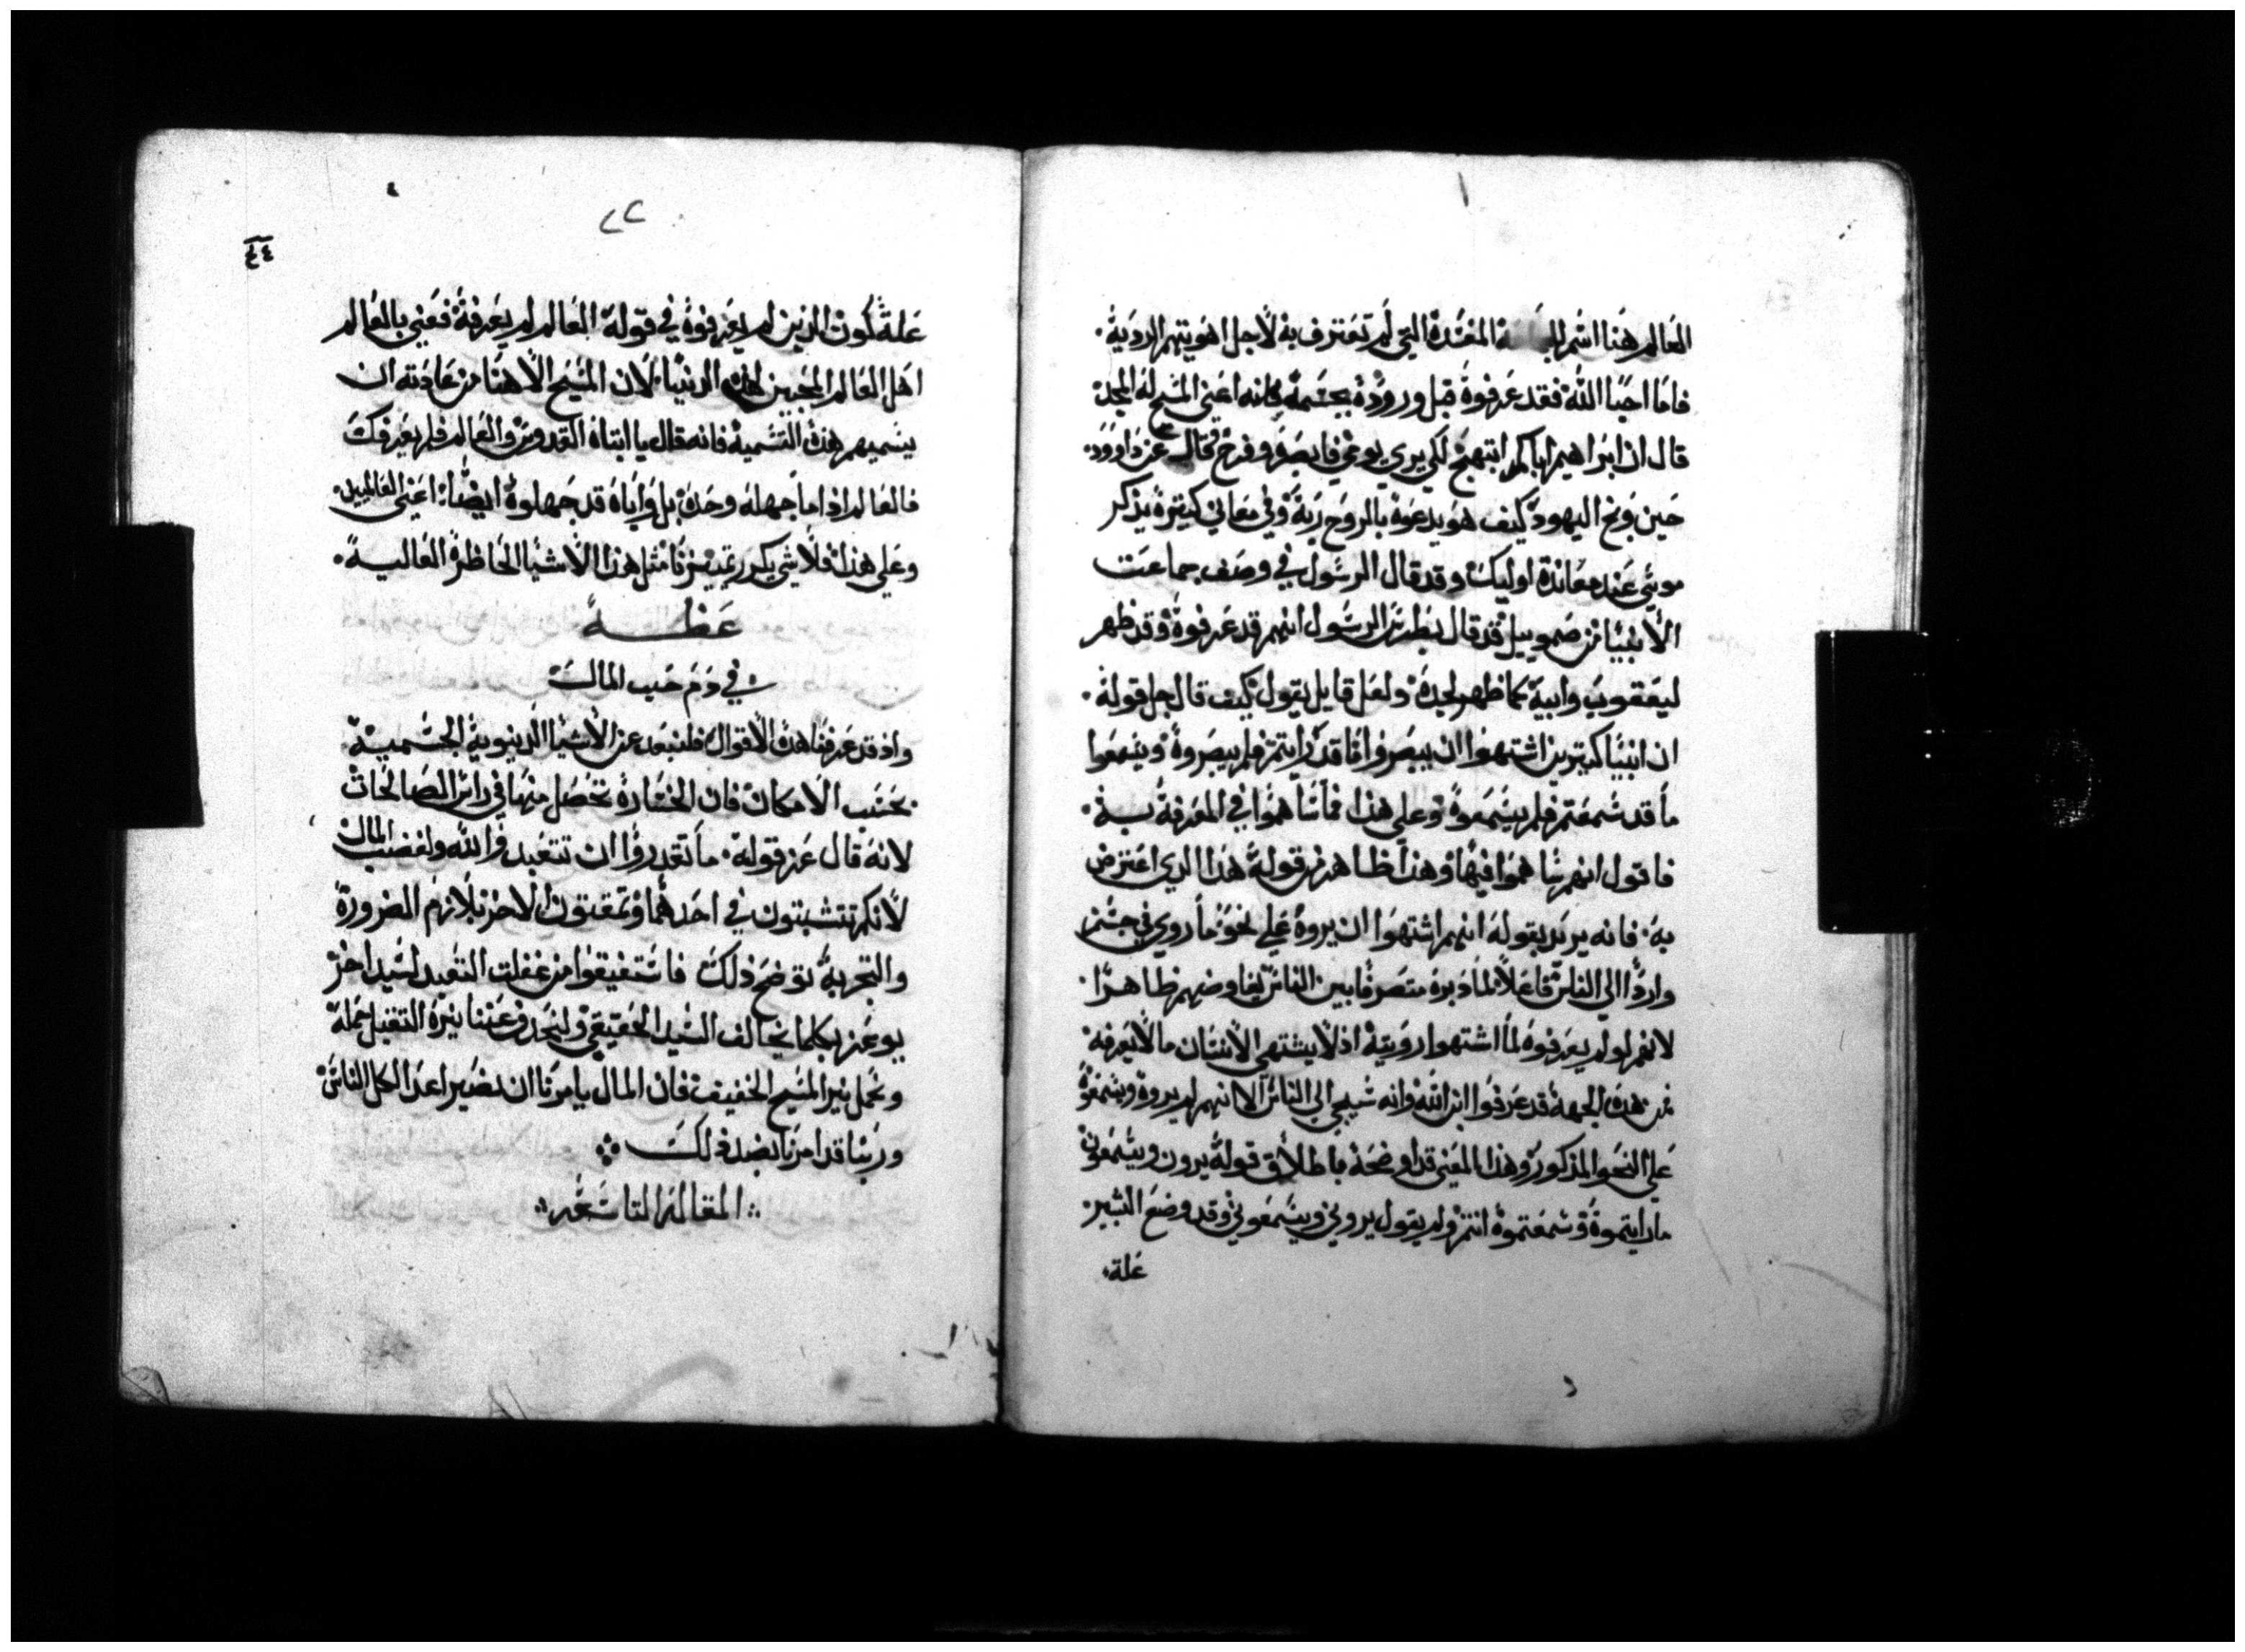 العالم هنا اسم المفسدة التي لم تعترف به لاجل اهويتهم الرديه
فاما احبا الله فقد عرفوه قبل وروده بجسمه فانه اعني المسيح له المجد
قال ان ابراهيم اباكم ابتهج لكي يري يومي فابصر وفرح وقال عن داوود
حين وبخ اليهود كيف هو يدعوه بالروح ربه وفي معاني كثيرة يذكر
موسي عند معاندة اوليك وقد قال الرسول في وصف جماعت
الانبيا من صموييل قد قال بطرس الرسول انهم قد عرفوه وقد ظهر
ليعقوب وابيه كما ظهر لجده ولعل قايل يقول كيف قال جل قوله
ان انبيا كتيرين اشتهوا ان يبصروا ما قد رايتم فلم يبصروه ويسمعوا
ما قد سمعتم فلم يسمعوه وعلي هذا فما ساهموا في المعرفة به
فاقول انهم ساهموا فيها وهذا ظاهر من قوله هذا الدي اعترض
به فانه يريد بقوله انهم اشتهوا ان يروه علي نحو ما روي في جسم
واردا الي الناس فاعلا لما دبره متصرفا بين الناس يفاوضهم ظاهرا
لانهم لو لم يعرفوه لما اشتهوا رويته اذ لا يشتهي الانسان ما لا يعرفه
فمن هذه الجهة قد عرفوا ابن الله وانه سيجي الي الناس الا انهم لم يروه ويسمعوه
علي النحو المذكور وهذا المعني قد اوضحه باطلاق قوله يرون ويسمعون
ما رايتموه وسمعتموه انتم ولم يقول يروني ويسمعوني وقد وضع البشير
علة
٢٢
٤٤
علة كون الذين لم يعرفوه في قوله العالم لم يعرفه فعني بالعالم
اهل العالم المحبين لهذه الدنيا لان المسيح الاهنا من عادته ان
يسميهم هذه التسميه فانه قال يا ابتاه القدوس والعالم فلم يعرفك
فالعالم اذا ما جهله وحده بل واباه قد جهلوه ايضا اعني العالميين
وعلي هذا فلا شي يكرر مثل هذا الاشيا الحاظرة العاليه
عظة
في ذم حب المال
واذ قد عرفنا هذه الاقوال فلنبعد عن الاشيا الدنيوية الجسميه
بحسب الامكان فان الخسارة تحصل منها في راس الصالحات
لانه قال عز قوله ما تقدروا ان تتعبدوا لله ولغضب المال
لانكم تتشبتون في احدهما وتمقتون الاخر بلازم الضرورة
والتجربة توضح ذلك فاستفيقوا من غفلت التعبد لسيد اخر
يوعز بكلما يخالف السيد الحقيقي ولنجد عن عنقنا نيره التقيل جمله
ونحمل نير المسيح الخفيف فان المال يامرنا ان نصير اعدا لكل الناس
وربنا قد امرنا بضد ذلك
المقالة التاسعه